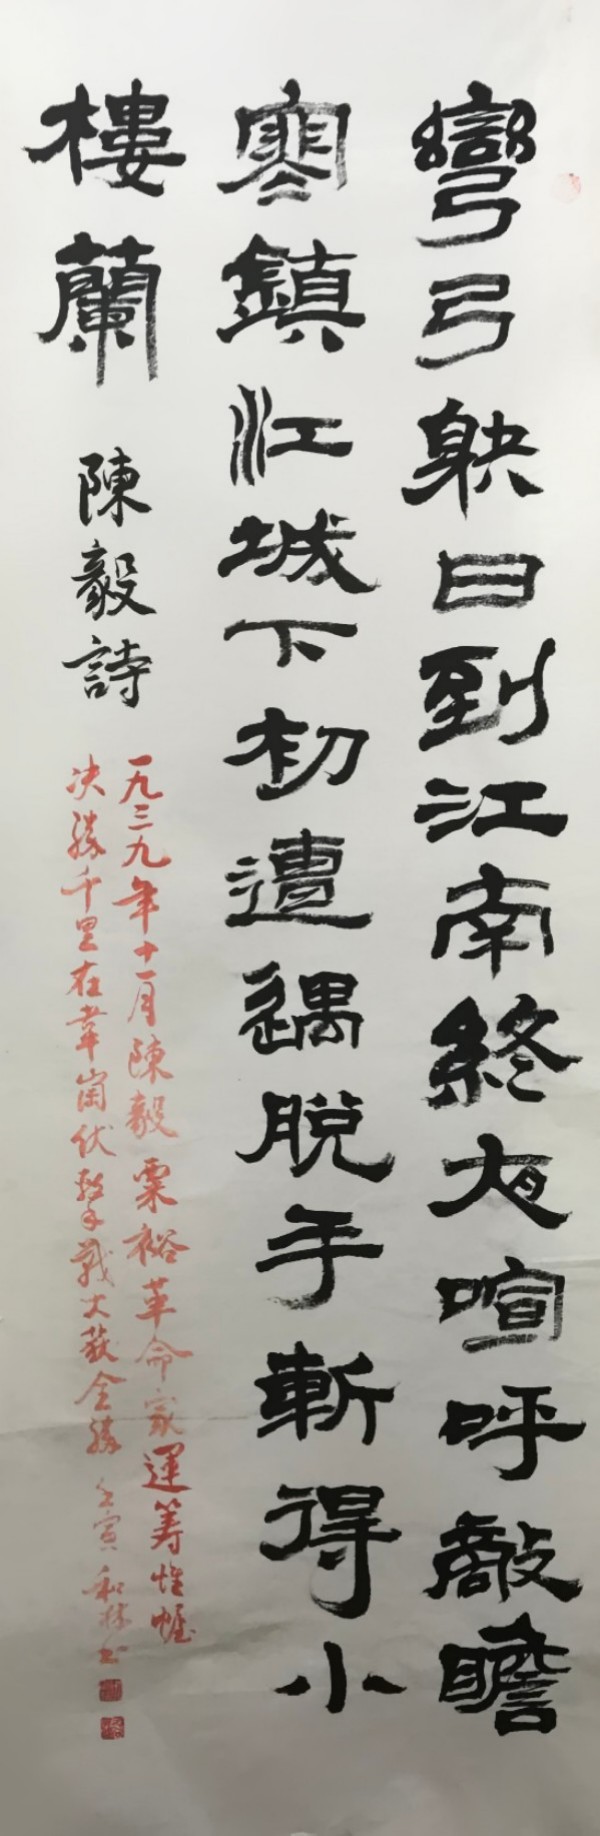 彎弓躲日到江南終夜喧呼敵膽
寒鎮江城下初遭遇脫手斬得小
樓蘭
陳毅詩
一九三九年十一月陳毅粟裕革命家運籌惟幄
决勝千里在韋崗伏擊戰大獲全勝 壬寅 和林书